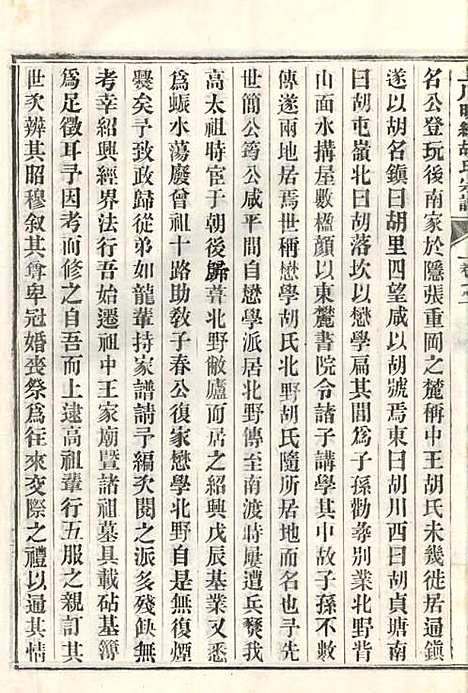 名公登玩後南家於隱張重岡之麓稱中王胡氏未幾徙居通鎭
遂以胡名鎭曰胡里四望咸以胡號焉東曰胡川西曰胡貞塘南
曰胡屯嶺北曰胡落坎以懋學扁其閭爲子孫勸彛別業北野背
山面水搆屋數楹顔以東麓書院令諸子講學其中故子孫不數
傳遂兩地居焉世稱懋學胡氏北野胡氏隨所居地而名也予先
世簡公筠公咸平間自懋學派居北野傳至南渡時屢遭兵燹我
高太祖時宦于朝後歸葺北野敝廬而居之紹興戊辰基業又悉
爲蜧水蕩廢曾祖十路助敎子春公復家懋學北野自是無復煙
爨矣予致政歸從弟如龍輩持家譜請予編次閱之派多殘缺無
考幸紹興經界法行吾始遷祖中王家廟曁諸祖墓具載砧基簿
爲足徵耳予因考而修之自吾而上逮高祖輩行五服之親訂其
世次辨其昭穆叙其尊卑冠婚喪祭爲往來交際之禮以通其情